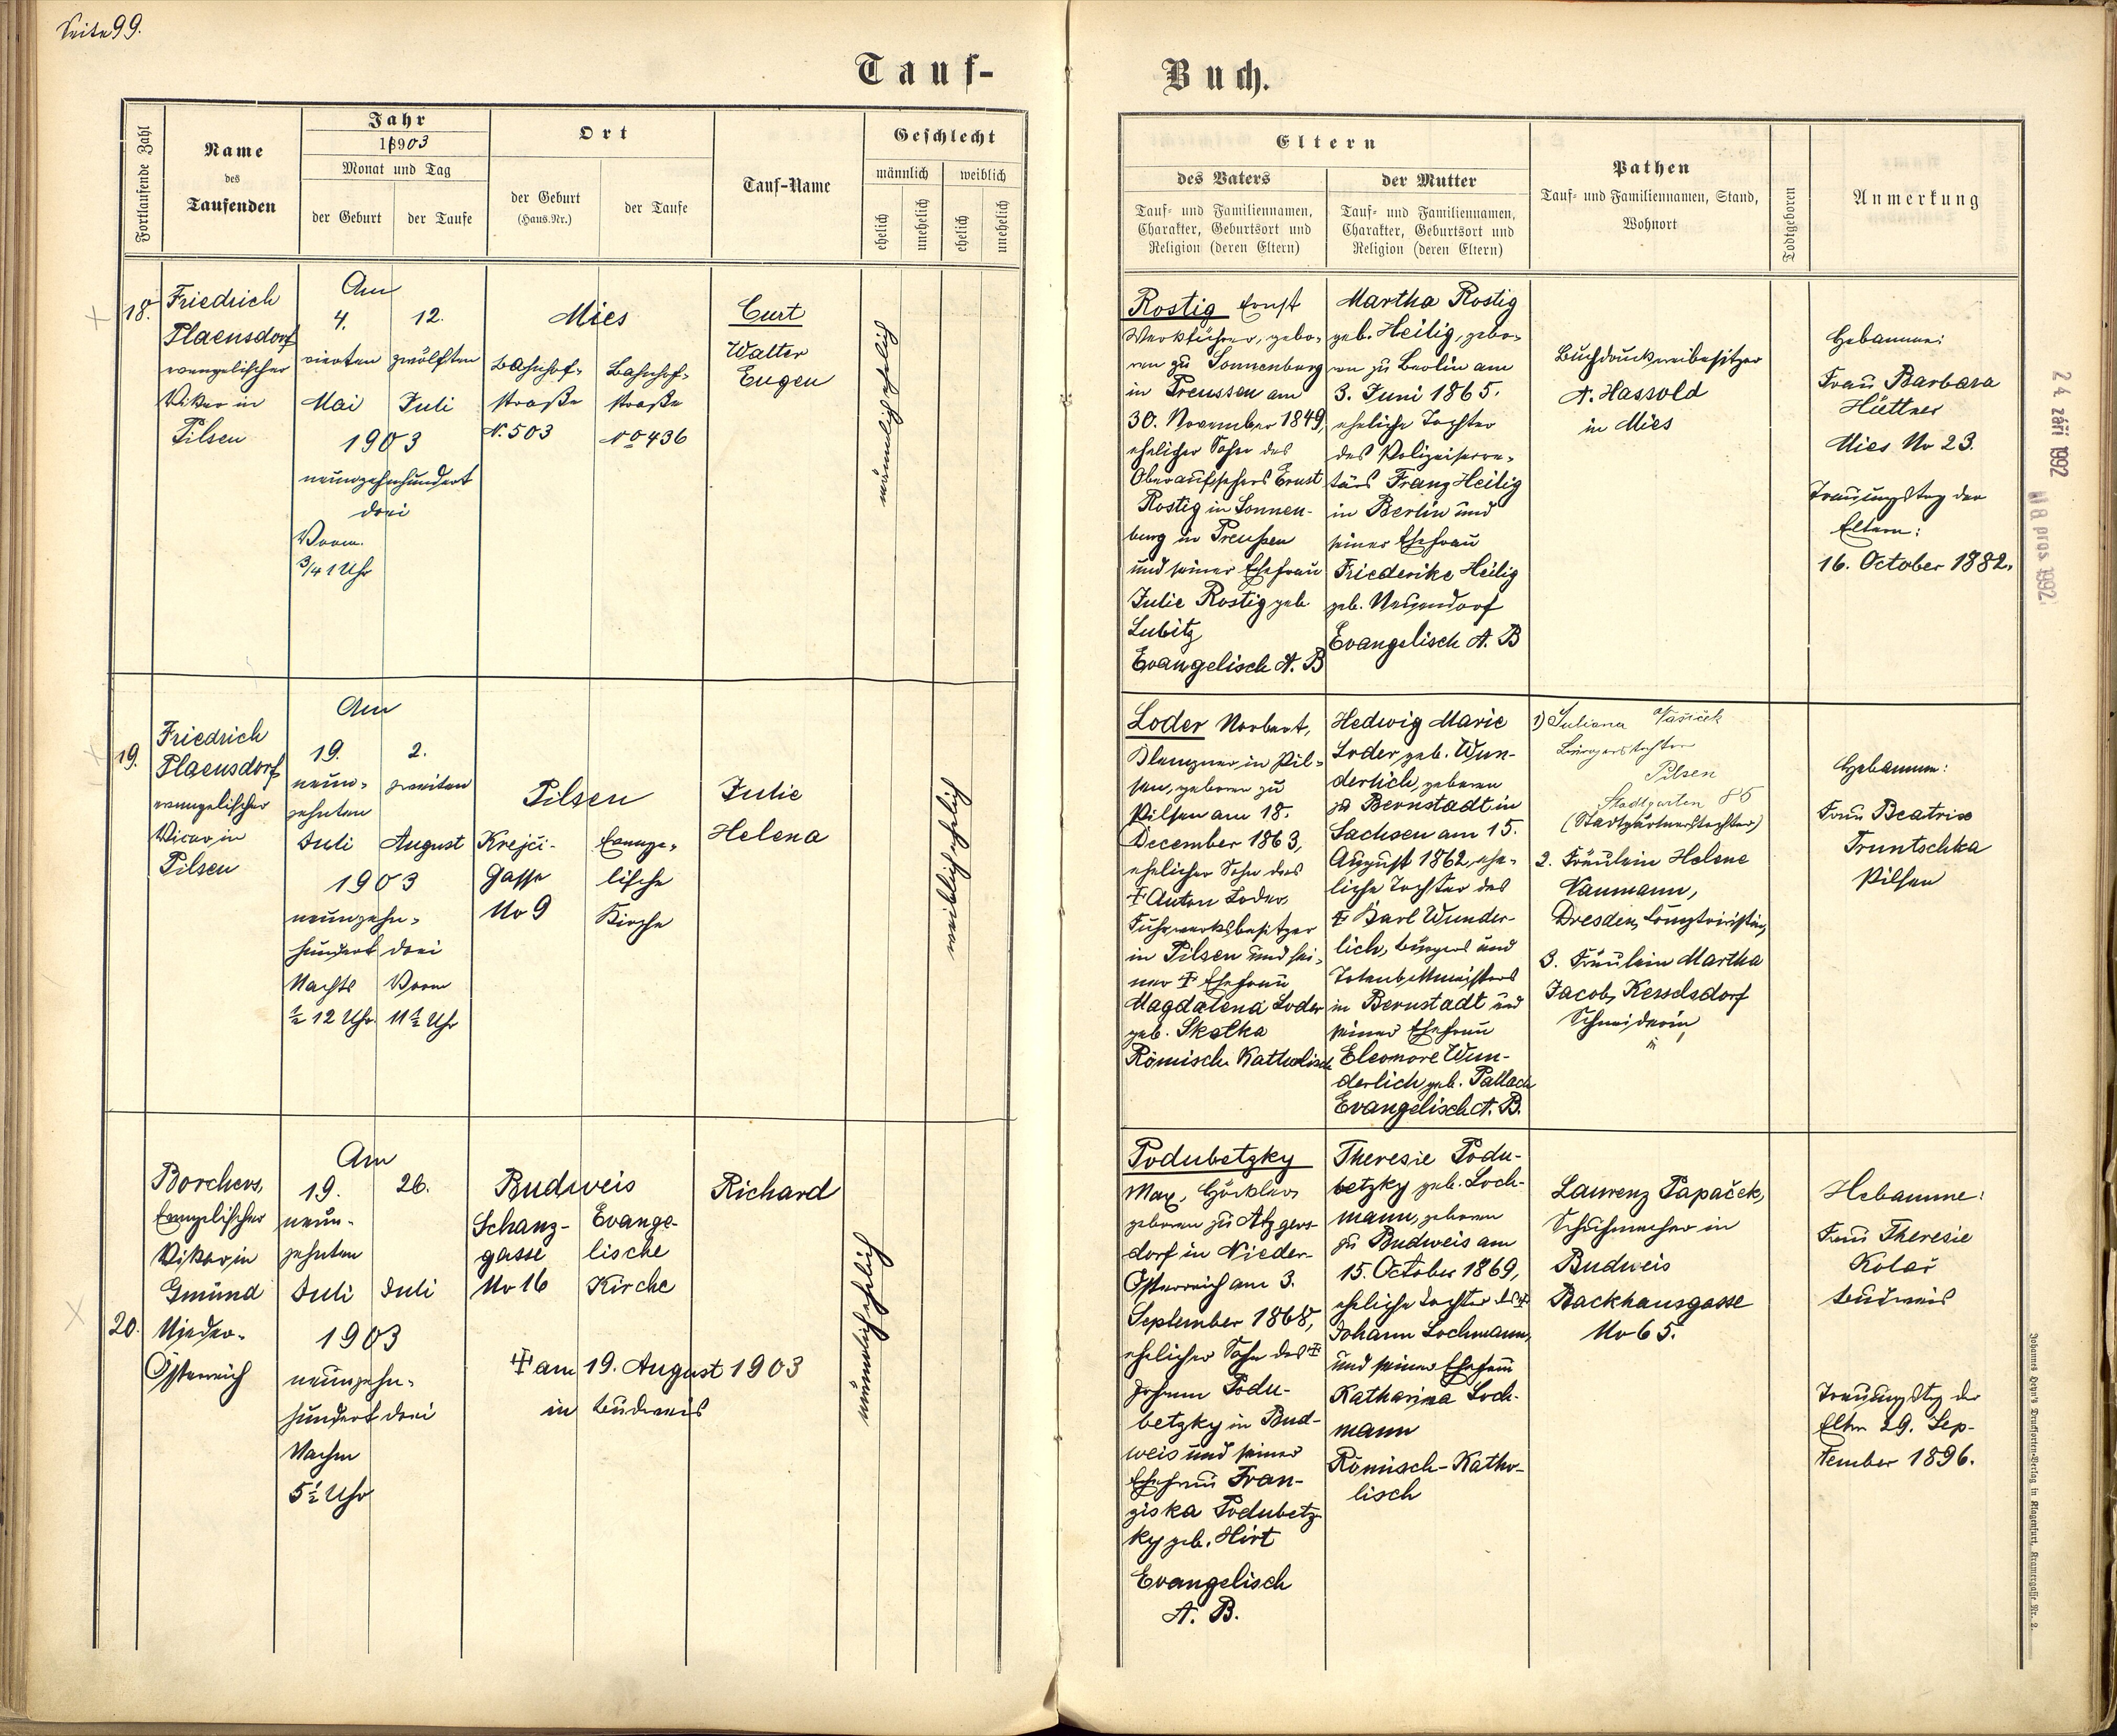 Seite 99.
Tauf-
Buch.
Fortlaufende Zahl
Name
des
Taufenden
Jahr
1903
Monat und Tag
der Geburt
der Taufe
Ort
der Geburt
(Haus.Nr.)
der Taufe
Tauf-Name
Geschlecht
männlich
weiblich
ehelich
unehelich
ehelich
unehelich
Eltern
des Vaters
Tauf- und Familiennamen,
Charakter, Geburtsort und
Religion (deren Eltern)
der Mutter
Tauf- und Familiennamen,
Charakter, Geburtsort und
Religion (deren Eltern)
Pathen
Tauf- und Familiennamen, Stand,
Wohnort
Todtgeboren
Anmerkung
18.
Friedrich
Plaensdorf
evangelischer
Vikar in
Pilsen
Am
4.
12.
vierten
zwölften
Mai
Juli
1903
neunzehnhundert
drei
Vorm.
3/4 1 Uhr
Mies
Bahnhof-
straße
N. 503
Bahnhof-
straße
No 436
Curt
Walter
Eugen
männlich ehelich
Rostig Ernst
Werkführer, gebo-
ren zu Sonnenburg
in Preussen am
30. November 1849,
ehelicher Sohn des
Oberaufsehers Ernst
Rostig in Sonnen-
burg in Preußen
und seiner Ehefrau
Julie Rostig geb.
Lubitz
Evangelisch A. B
Martha Rostig
geb. Heilig, gebo-
ren zu Berlin am
3. Juni 1865.
eheliche Tochter
des Polizeisekre-
tärs Franz Heilig
in Berlin und
seiner Ehefrau
Friederike Heilig
geb. Neuendorf
Evangelisch A. B
Buchdruckereibesitzer
A. Hassold
in Mies
Hebamme:
Frau Barbara
Hüttner
Mies No 23.
Trauungstag der
Eltern:
16. October 1882.
24 září 1992
18 pros. 1992
19.
Friedrich
Plaensdorf
evangelischer
Vicar in
Pilsen
Am
19.
2.
neun-
zehnten
zweiten
Juli
August
1903
neunzehn-
hundert drei
Nachts
Vorm
½ 12 Uhr.
11½ Uhr
Pilsen
Krejci-
Gasse
No 9
Evange-
lische
Kirche
Julie
Helena
weiblich ehelich
Loder Norbert,
Klempner in Pil-
sen, geboren zu
Pilsen am 18.
December 1863,
ehelicher Sohn des
† Anton Loder,
Fuhrwerksbesitzer
in Pilsen und sei-
ner † Ehefrau
Magdalena Loder
geb. Skalka
Römisch Katholisch
Hedwig Marie
Loder geb. Wun-
derlich, geboren
zu Bernstadt in
Sachsen am 15.
August 1862, ehe-
liche Tochter des
† Karl Wunder-
lich, Bürgers und
in Bernstadt und
seiner Ehefrau
Eleonore Wun-
derlich geb. Pallach
Evangelisch A. B.
1) Juliana Vašiček
Bürgerstochter
Pilsen
Stadtgarten 85
(Stadtgärtnerstochter)
2. Fräulein Helene
Naumann,
Dresden, Comptoiristin,
3. Fräulein Martha
Jacob, Kesselsdorf
Schneiderin
Hebamme:
Frau Beatrix
Truntschka
Pilsen
20.
Borchers,
Evangelischer
Vikar in
Gmünd
Nieder-
Österreich
Am
19.
26.
neun-
zehnten
Juli
Juli
1903
neunzehn-
hundert drei
Nachm
5½ Uhr
Budweis
Schanz-
gasse
No 16
Evange-
lische
Kirche
† am 19. August 1903
in Budweis
Richard
männlich ehelich
Podubetzky
Max,
geboren zu Atzgers-
dorf in Nieder-
Österreich am 3.
September 1868,
ehelicher Sohn des †
Johann Podu-
betzky in Bud-
weis und seiner
Ehefrau Fran-
ziska Podubetz-
ky geb. Hirt
Evangelisch
A. B.
Theresie Podu-
betzky geb. Loch-
mann, geboren
zu Budweis am
15. October 1869,
eheliche Tochter des †
Johann Lochmann,
und seiner Ehefrau
Katharina Loch-
mann
Römisch-Katho-
lisch
Laurenz Papaček,
Schuhmacher in
Budweis
Backhausgasse
No 65.
Hebamme:
Frau Theresie
Kolař
Budweis
Trauungstag der
Eltern 29. Sep-
tember 1896.
Johannes Heyn's Drucksorten-Verlag in Klagenfurt, Kramergasse Nr. 2.